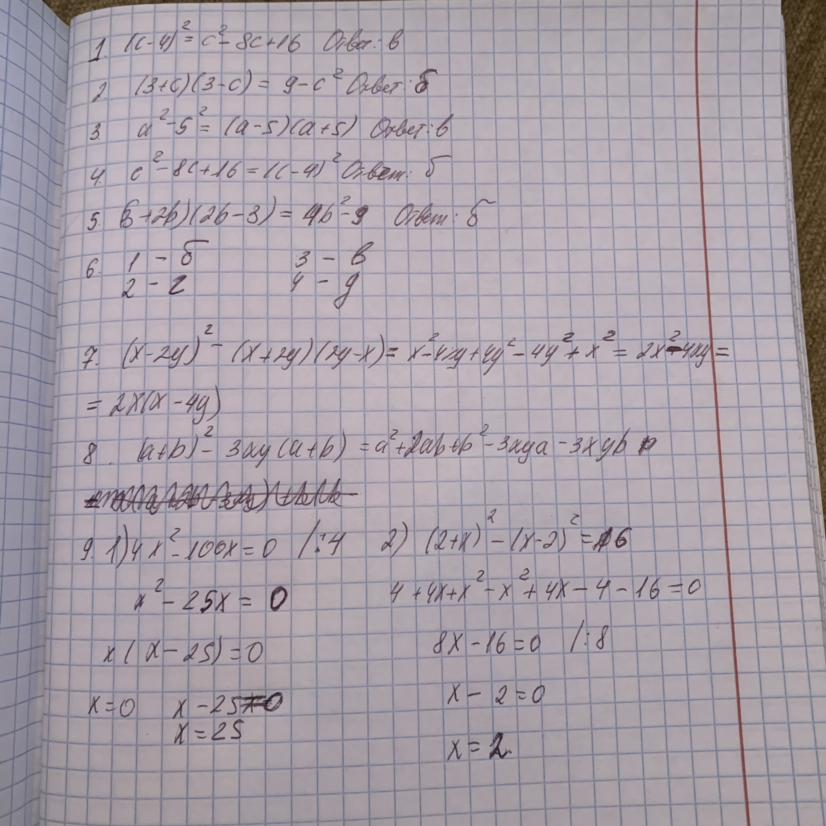 1. (c-4)² = c² - 8c + 16 Ответ: в
2. (3+c)(3-c) = 9 - c² Ответ: б
3. a² - 5² = (a-5)(a+5) Ответ: в
4. c² - 8c + 16 = (c-4)² Ответ: б
5. (3+2b)(2b-3) = 4b² - 9 Ответ: б
6. 1 - б 3 - в
2 - г 4 - д
7. (x-2y)² - (x+2y)(2y-x) = x² - 4xy + 4y² - 4y² + x² = 2x² - 4xy =
= 2x(x - 4y)
8. (a+b)² - 3xy(a+b) = a² + 2ab + b² - 3xya - 3xyb
9. 1) 4x² - 100x = 0 /:4 2) (2+x)² - (x-2)² = 16
x² - 25x = 0 4 + 4x + x² - x² + 4x - 4 - 16 = 0
x(x - 25) = 0 8x - 16 = 0 /:8
x = 0 x - 25 = 0 x - 2 = 0
x = 25 x = 2